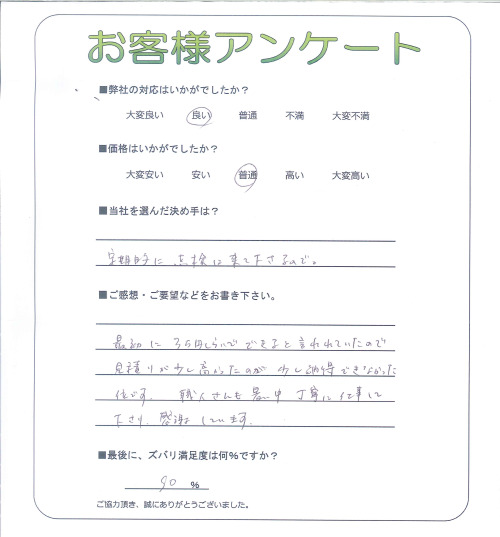 お客様アンケート
■弊社の対応はいかがでしたか？
大変良い 良い 普通 不満 大変不満
■価格はいかがでしたか？
大変安い 安い 普通 高い 大変高い
■当社を選んだ決め手は？
定期的に 点検に来て下さるので。
■ご感想・ご要望などをお書き下さい。
最初に 35万円くらいでできると言われていたので
見積りが少し高かったのが 少し納得できなかった
位です。 職人さんも 暑い中 丁寧に仕事して
下さり、感謝しています。
■最後に、ズバリ満足度は何%ですか？
90 %
ご協力頂き、誠にありがとうございました。